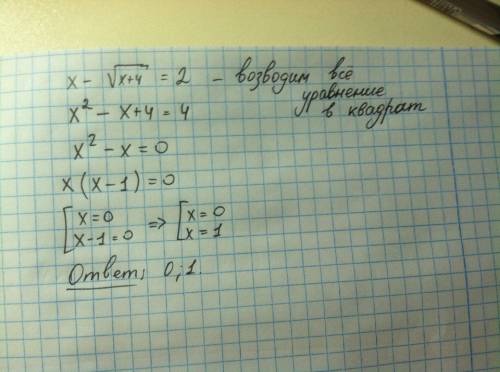 x - √(x+4) = 2 - возводим всё
уравнение
в квадрат
x² - x + 4 = 4
x² - x = 0
x (x - 1) = 0
[ x = 0 => [ x = 0
x - 1 = 0 x = 1
Ответ: 0; 1.